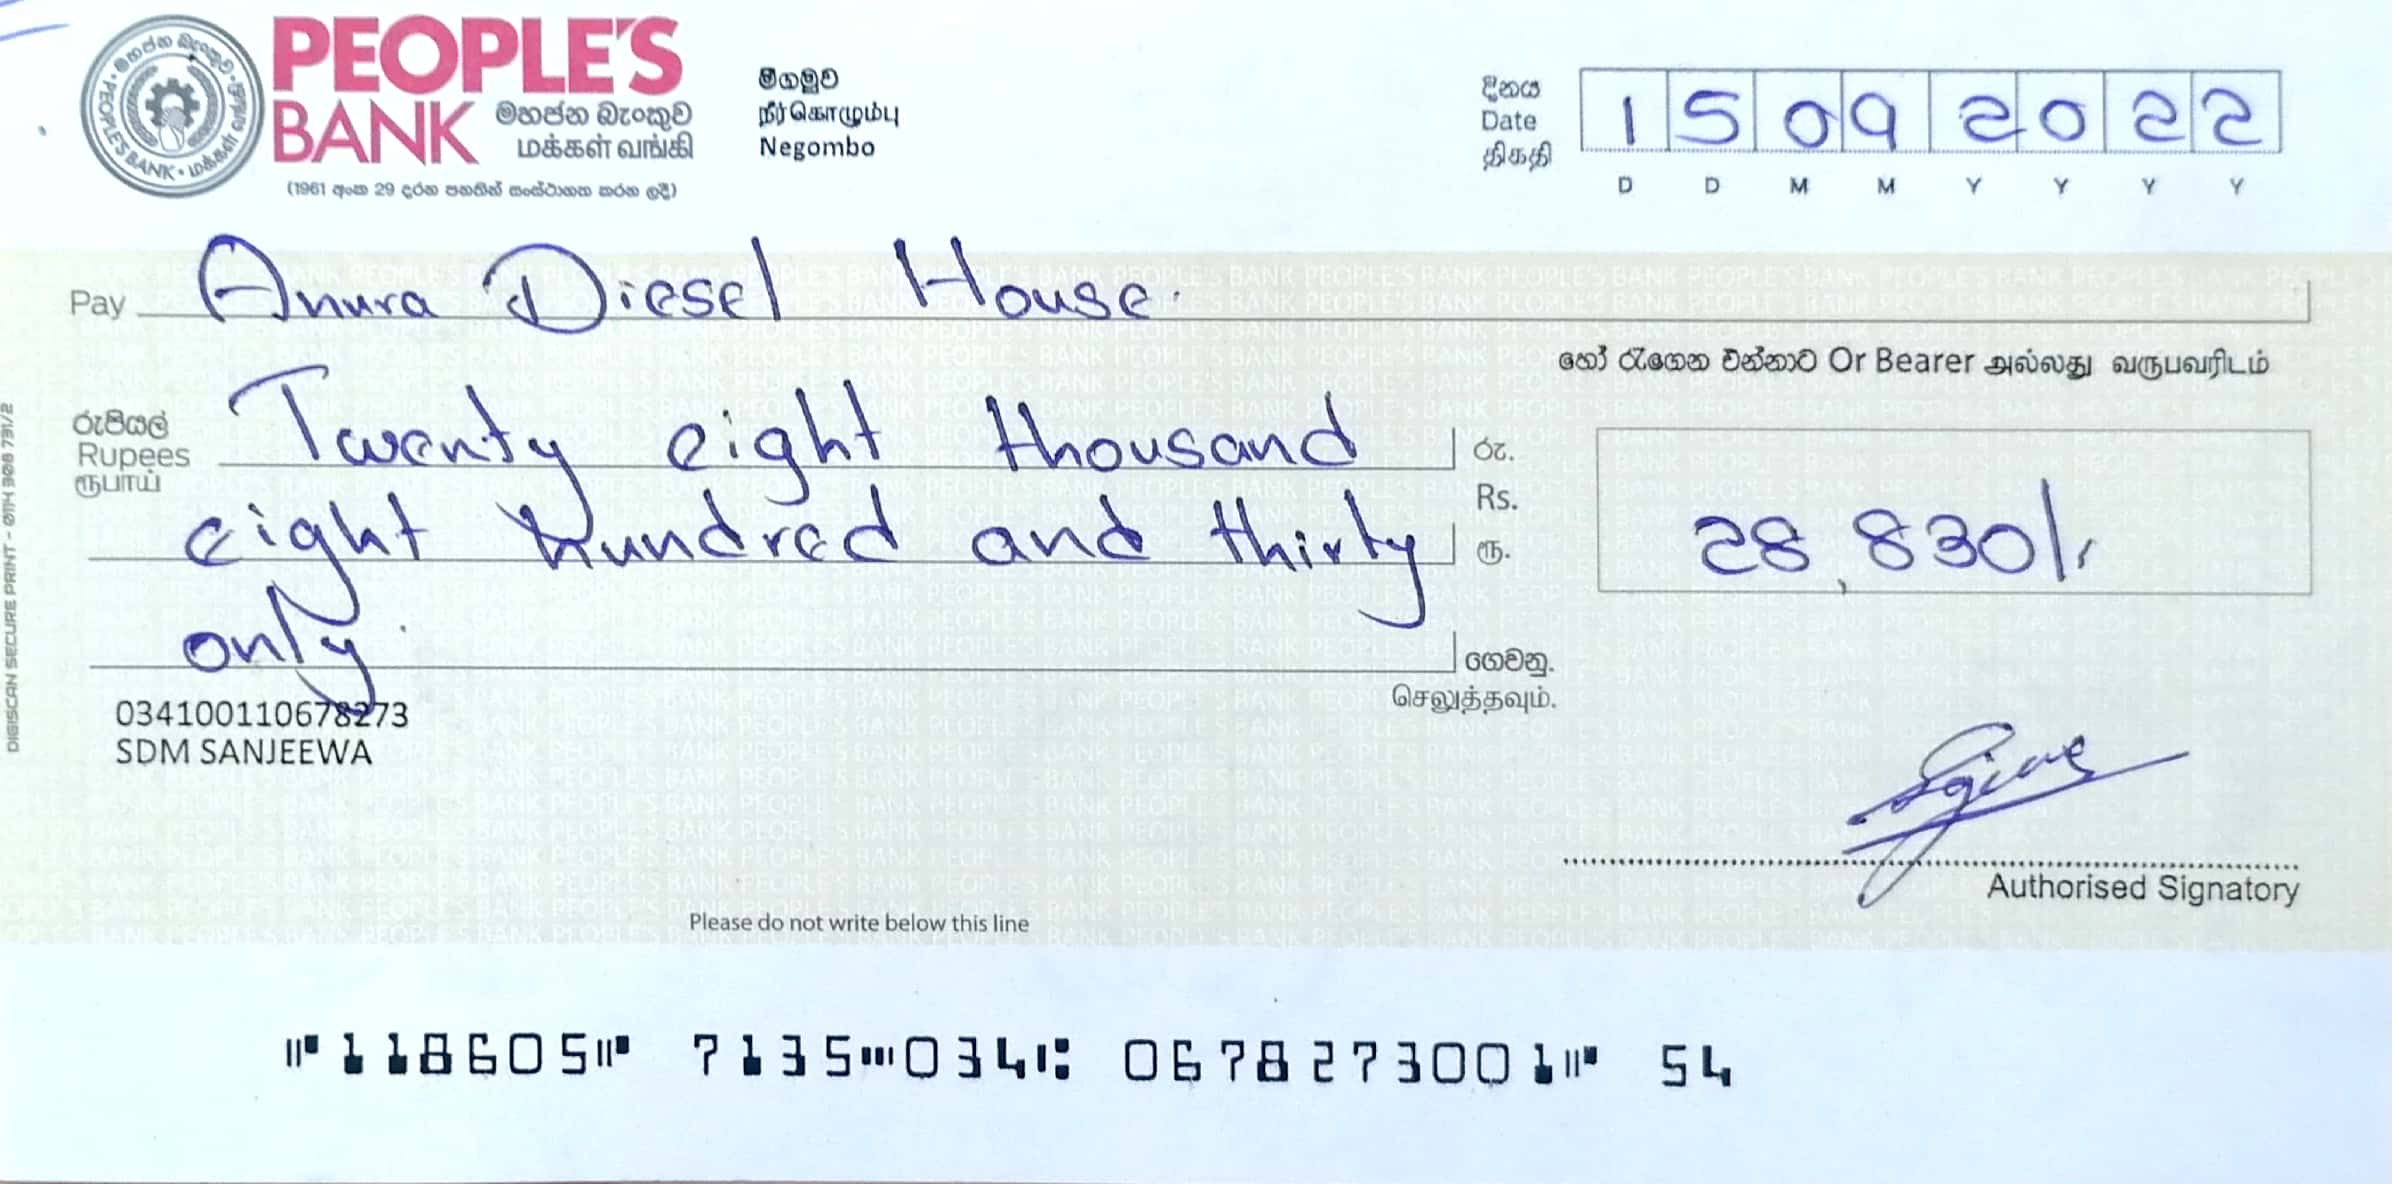 PEOPLE'S
BANK මහජන බැංකුව
மக்கள் வங்கி
(1961 අංක 29 දරන පනතින් සංස්ථාගත කරන ලදී)
මීගමුව
நீர்கொழும்பு
Negombo
දිනය
Date
திகதி
15092022
D D M M Y Y Y Y
Pay Anura Diesel House.
හෝ රැගෙන එන්නාට Or Bearer அல்லது வருபவரிடம்
රුපියල්
Rupees
ரூபாய்
Twenty eight thousand
eight hundred and thirty
only.
රු.
Rs.
ரூ.
28,830/.
ගෙවනු.
செலுத்தவும்.
034100110678273
SDM SANJEEWA
Authorised Signatory
Please do not write below this line
⑈118605⑈ 7135⑉034⑆ 0678273001⑈ 54